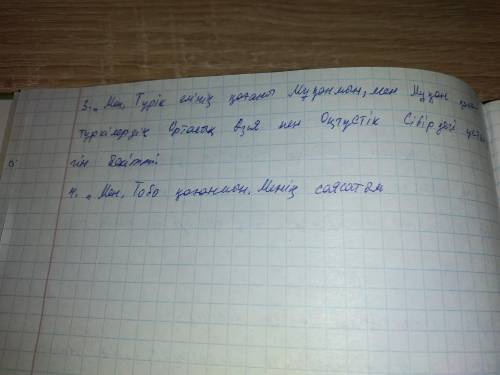 3. „Мен, Түрік елінің қағаны Мұқанмын, мен Мұқан
түркілердің Орталық Азия пен Оңтүстік Сібірдегі
гін бекітті
4. „Мен, Тобо қағанмын. Менің саясатым